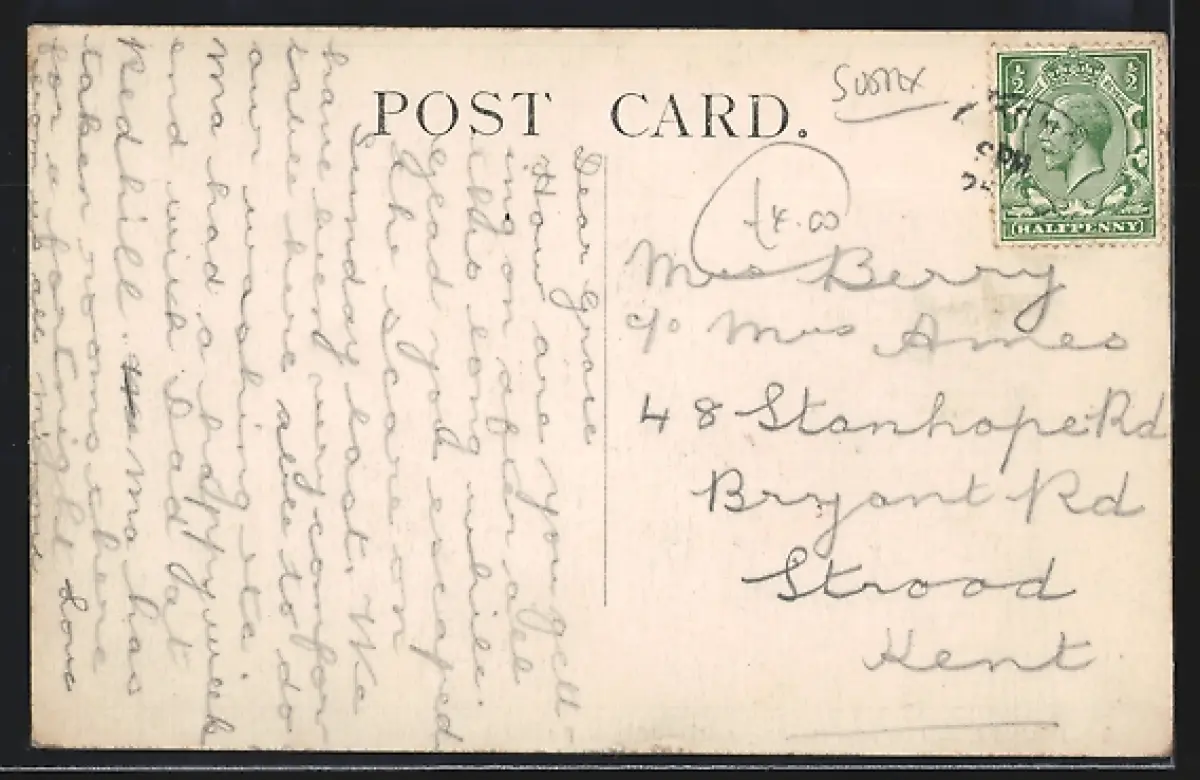 POST CARD.
Sussex
£4.00
½ ½
HALFPENNY
PM
Mrs Berry
c/o Mrs Ames
48 Stanhope Rd
Bryant Rd
Strood
Kent
Dear Grace
How are you gett-
ing on after all
this long while.
Glad you escaped
the scare on
Sunday last. We
have been very comfor
table here able to do
our washing etc
Ma had a happy week
end with Dad at
Redhill. Ma has
taken rooms there
for a fortnight Love
from all